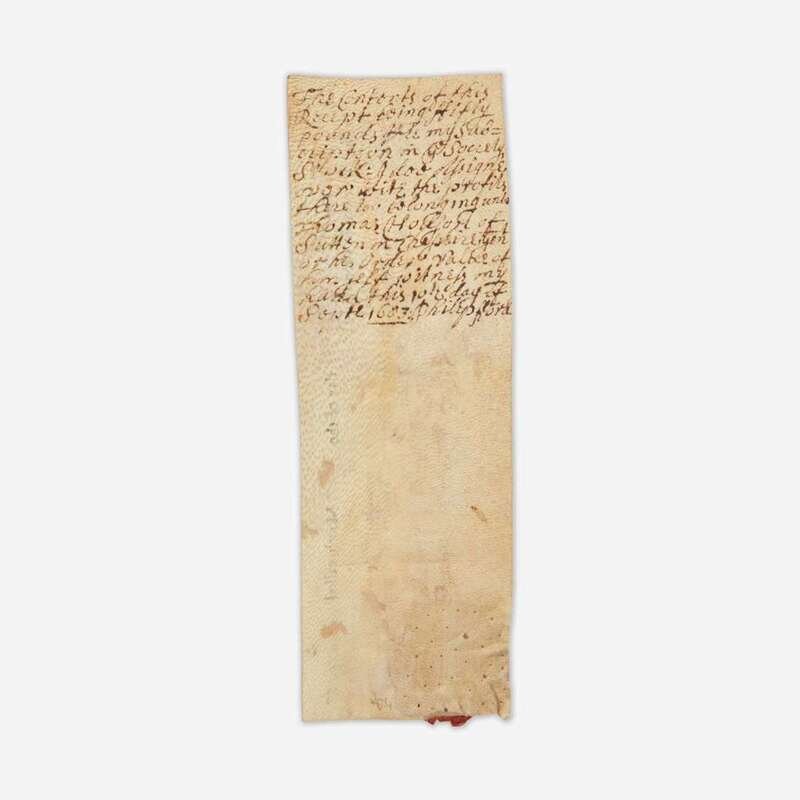 The Contents of this
Receipt being fifty
pounds ster my Sub=
cription in ye Society
Stock: I doe assigne
over with the profits
there too belonging unto
Thomas Holford of
Sutton in Chesshire gen
or his order vallue of
him self witness my
hand this 10th day of
Sept 1683 Philip ford